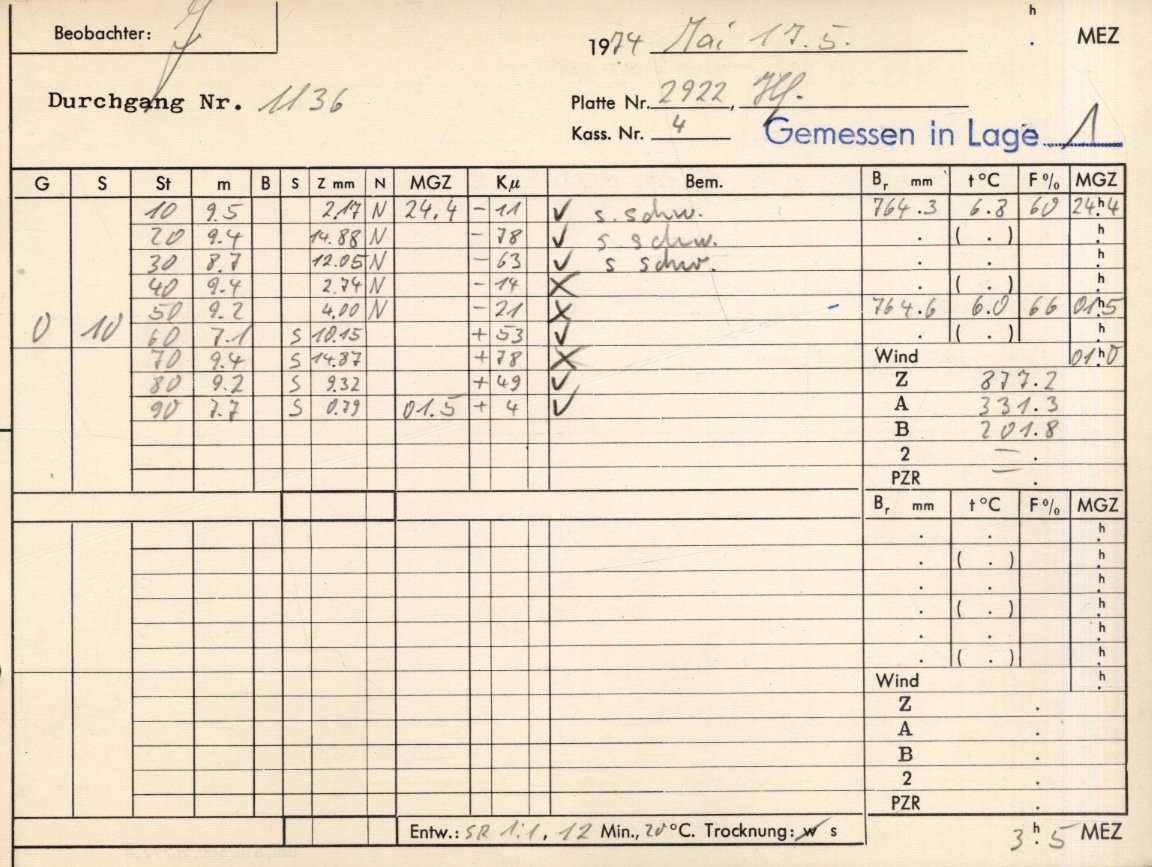 Beobachter:
h
. MEZ
1974 Mai 17.5.
Durchgang Nr. 1136
Platte Nr. 2922,
Kass. Nr. 4
Gemessen in Lage 1
G S St m B S Z mm N MGZ Kµ Bem. Br mm t°C F% MGZ
10 9.5 2.17 N 24.4 - 11 ✓ s. schw. 764.3 6.8 60 24h4
20 9.4 14.88 N - 78 ✓ s. schw. . ( . ) h.
30 8.7 12.05 N - 63 ✓ s schw. . . h.
40 9.4 2.74 N - 14 X . ( . ) h.
50 9.2 4.00 N - 21 X - 764.6 6.0 66 01h5
0 10 60 7.1 S 10.15 + 53 ✓ . ( . ) h.
70 9.4 S 14.87 + 78 X Wind 01h0
80 9.2 S 9.32 + 49 ✓ Z 877.2
90 7.7 S 0.79 01.5 + 4 ✓ A 331.3
B 201.8
2 = .
PZR .
Br mm t°C F% MGZ
. . h.
. ( . ) h.
. . h.
. ( . ) h.
. . h.
. ( . ) h.
Wind h.
Z .
A .
B .
2 .
PZR .
Entw.: SR 1:1, 12 Min., 20°C. Trocknung: w s
3h.5 MEZ